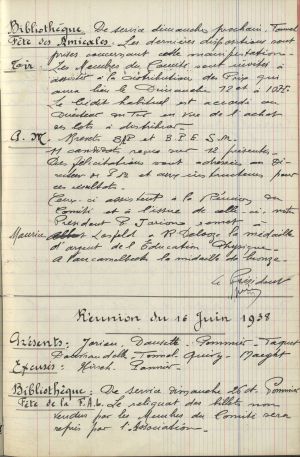 Bibliothèque. De service dimanche prochain. Tonnel
Fête des Amicales. Les dernières dispositions sont
prises concernant cette manifestation.
Tir Les Membres du Comité sont invités à
assister à la distribution des Prix qui
aura lieu le Dimanche 12 et à 10h.
Le Crédit habituel est accordé au
Directeur du Tir en vue de l'achat
des lots à distribuer.
P. M. Brevets B.A.P. et B.P.E.S.M.
11 candidats reçus sur 12 présentés.
Des félicitations sont adressées au Di-
recteur de P.M. et aux instructeurs pour
ces résultats.
Ceux-ci assistent à la Réunion du
Comité et à l'issue de celle-ci, notre
Président P. remet à
Maurice R. la médaille
d'argent de l'Éducation Physique.
A la médaille de bronze.
Le Président
Réunion du 16 Juin 1938
Présents: Dausette. Pommier. Taquet
Tonnel
Excusés: Hirsch.
Bibliothèque: De service dimanche 26 ct. Pommier
Fête de la F.A.L. Le reliquat des billets non
vendus par les Membres du Comité sera
repris par l'Association.